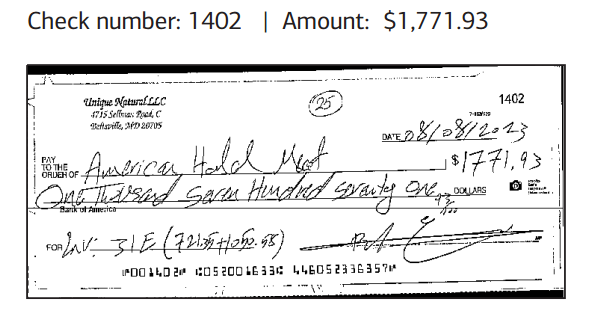 Check number: 1402 | Amount: $1,771.93
Unique Natural LLC
4715 Sellman Road, C
Beltsville, MD 20705
25
1402
DATE 08/08/2023
PAY TO THE ORDER OF American Halal Meat $1771.93
One Thousand Seven Hundred Seventy One 93/100 DOLLARS
Bank of America
FOR Inv: 31E (721.35+1050.58)
⑈001402⑈ ⑆052001633⑆ 446052336357⑈